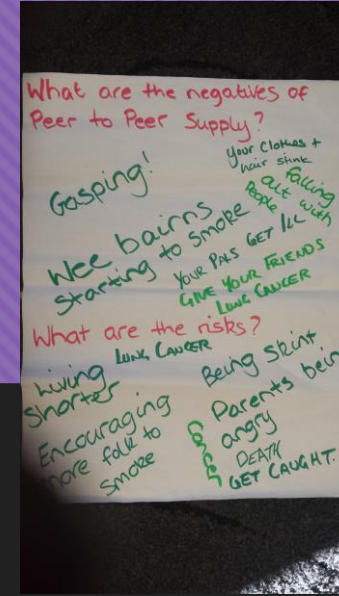 What are the negatives of
Peer to Peer Supply?
Gasping!
Your Clothes +
hair stink
Falling
out with
People
Wee bairns
starting to smoke
YOUR PALS GET ILL
GIVE YOUR FRIENDS
LUNG CANCER
What are the risks?
LUNG CANCER
Living
Shorter
Being Skint
Encouraging
more folk to
smoke
Parents bein
angry
Cancer
DEATH
GET CAUGHT.